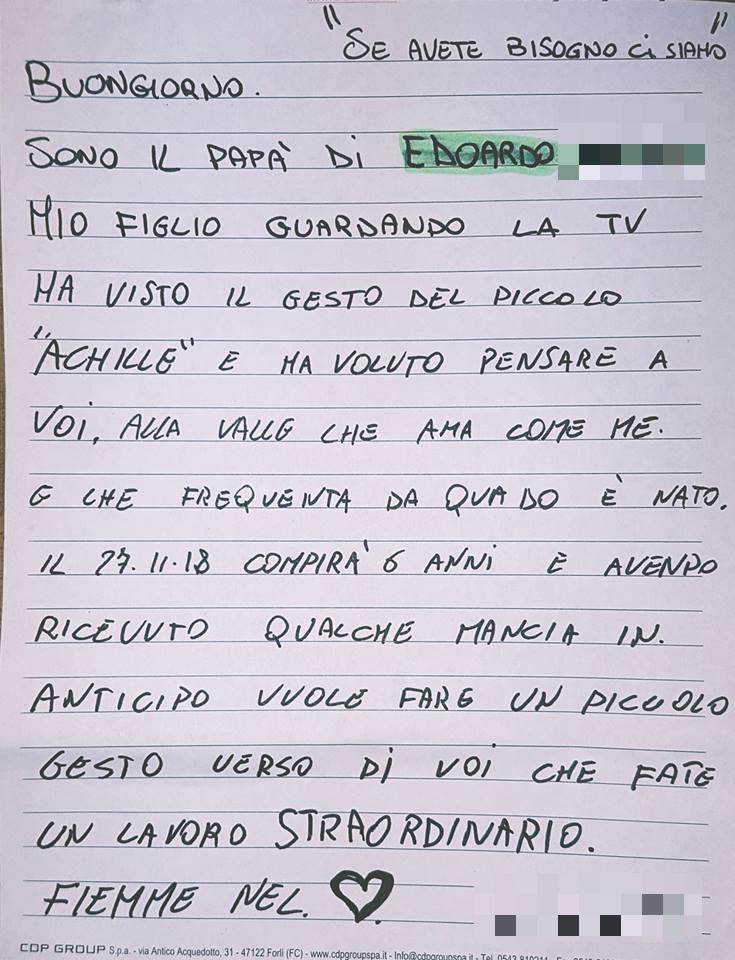 "SE AVETE BISOGNO Ci SIAMO"
BUONGIORNO.
SONO IL PAPÀ Di EDOARDO
MIO FIGLIO GUARDANDO LA TV
HA VISTO IL GESTO DEL PICCOLO
"ACHILLE" E HA VOLUTO PENSARE A
VOi, ALLA VALLE CHE AMA COME ME.
E CHE FREQUENTA DA QUADO È NATO.
IL 27.11.18 COMPIRA' 6 ANNi E AVENDO
RICEVUTO QUALCHE MANCIA IN.
ANTICIPO VUOLE FARE UN PICCOLO
GESTO VERSO Di VOi CHE FATE
UN LAVORO STRAORDINARIO.
FIEMME NEL. ♡
CDP GROUP S.p.a. - via Antico Acquedotto, 31 - 47122 Forlì (FC) - www.cdpgroupspa.it - Info@cdpgroupspa.it - Tel. 0543